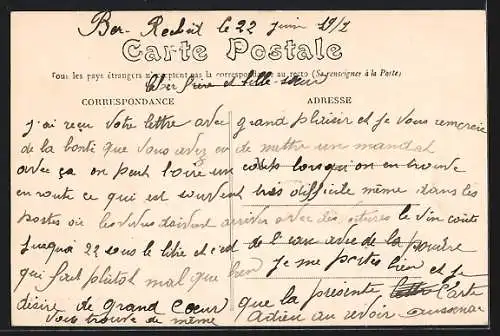 Ber-Rechid le 22 juin 1912
Carte Postale
Tous les pays étrangers n'acceptent pas la correspondance au recto (Se renseigner à la Poste)
Cher frère et belle-sœur
CORRESPONDANCE ADRESSE
j'ai reçu votre lettre avec grand plaisir et je vous remercie
de la bonté que vous avez eu de mettre un mandat
avec ça on peut boire un coup lorsqu'on en trouve
en route ce qui est souvent très difficile même dans les
postes où les vivres doivent arriver avec des le vin coute
jusqua 22 sous le litre et c'est de l'eau avec de la poudre
qui fait plutot mal que bien je me portes bien et je
désire de grand cœur que la présente lettre Carte
vous trouve de même Adieu au revoir